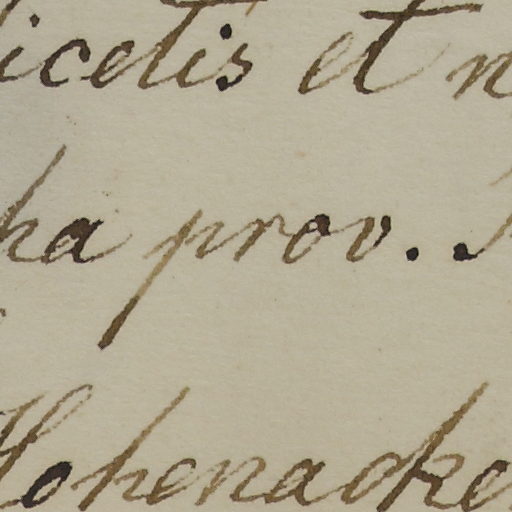 icetis et n
ha prov.
Hohenacke